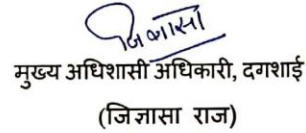 जिज्ञासा
मुख्य अधिशासी अधिकारी, दगशाई
(जिज्ञासा राज)